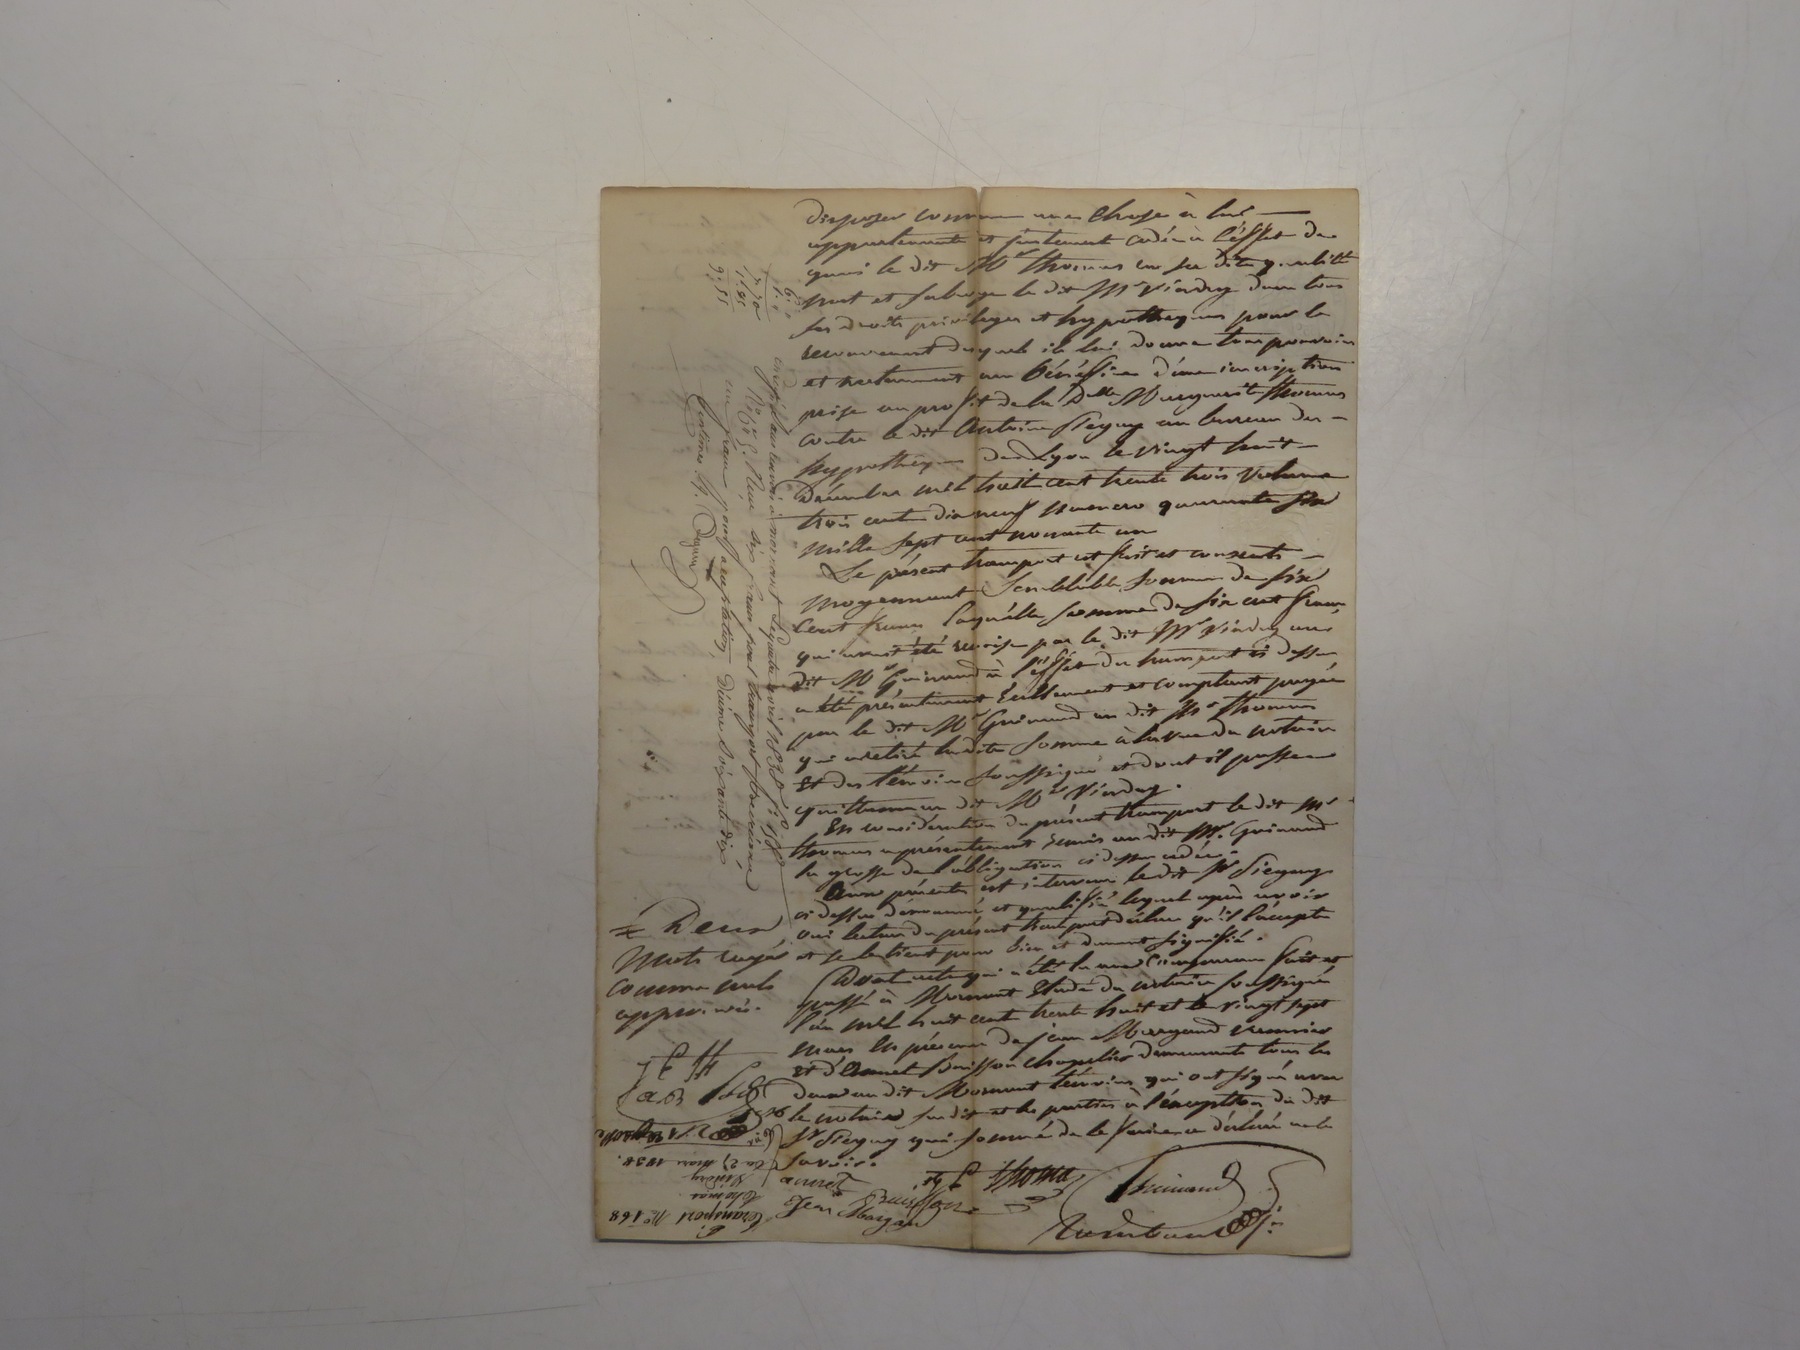 disposer comme une chose à lui
appartenante et justement cédée à l'éffet de
quoi le dit Mr thomas en sa dite qualité
met et subroge le dit Mr Viardey dans tous
ses droits privilèges et hypotheques pour le
recouvrement desquels il lui donne tous pouvoirs
et notamment au bénéffice d'une inscription
prise au profit de la Delle Marguerite thomas
contre le dit Antoine au bureau des
hypothèques de Lyon le vingt huit
Décembre mil huit cent trente trois volume
trois cent dix neuf numero quarante six
mille sept cent nonante un
Le présent transport est fait et consenti
moyennant semblable somme de six
cent francs laquelle somme de six cent francs
qui avait été remise par le dit Mr Viardey au
dit Mr Guinand à l'éffet du transport ci dessus
a été présentement réellement et comptant payée
par le dit Mr Guinand au dit Mr thomas
qui a retiré la dite somme à la vue du notaire
et des témoins soussignés et dont il passe
quittance au dit Mr Viardey.
En considération du présent transport le dit Mr
thomas a présentement remis au dit Mr Guinand
la grosse de l'obligation ci dessus cédée.
Aux présentes est intervenu le dit Sr
ci dessus dénommé et qualifié lequel après avoir
oui lecture du présent transport déclare qu'il l'accepte
et se le tient pour bien et dument signifié.
Dont acte qui a été lu aux comparans fait et
passé à Mornant Etude du notaire soussigné
l'an mil huit cent trente huit et le vingt sept
mars en présence de jean vannier
et d' Buisson chapelier demeurants tous les
deux au dit Mornant témoins qui ont signé avec
le notaire susdit et les parties à l'éxception du dit
Sr qui sommé de le faire a déclaré ne le
savoir.
thomas
Guinand
Buisson
Jean
Deux
mots rayés
comme nuls
approuvés.
Enregistré à mornant le quatre avril 1838
Reçu six francs pour transport
un franc pour acceptation, décime soixante dix
centimes
Transport No 168
thomas
Viardey
Du 27 mars 1838.